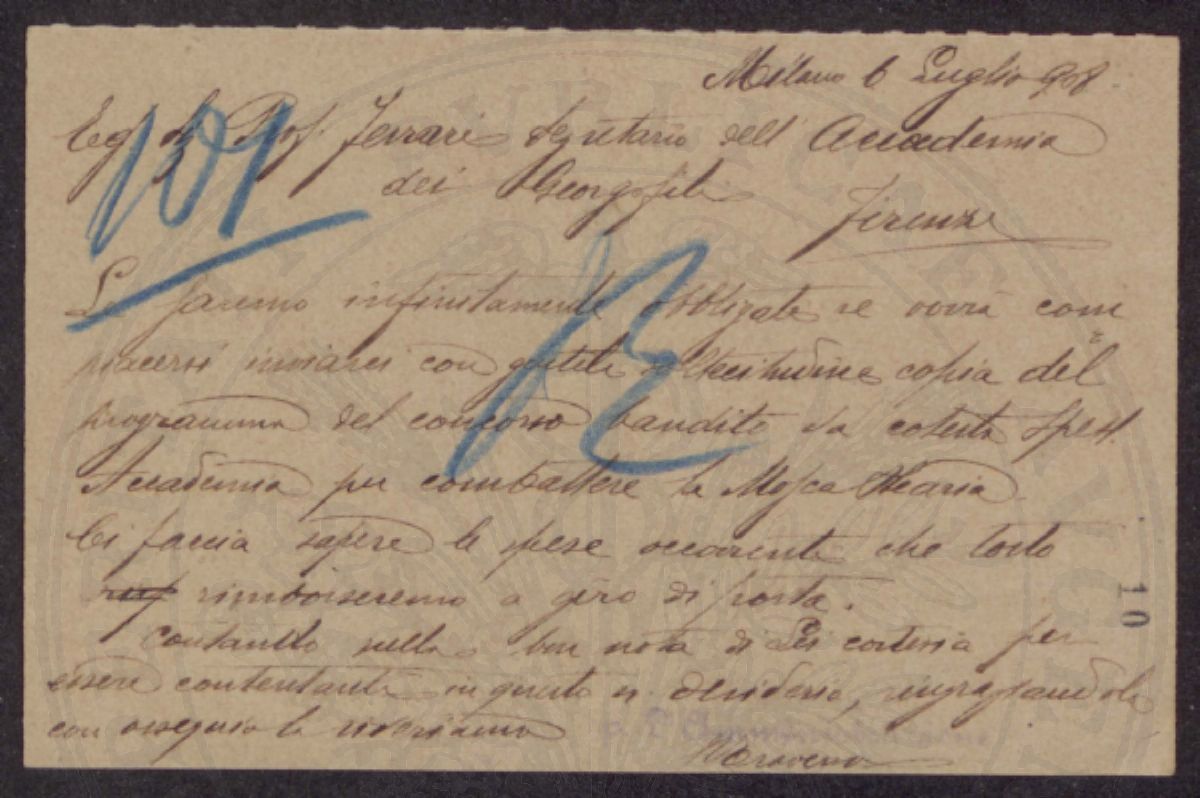 Milano 6 Luglio 908.
101
Eg. Prof. Ferrari Segretario dell' Accademia
dei Georgofili
Firenze
Le saremo infinitamente obbligati se vorrà com
piacersi inviarci con gentile sollecitudine copia del
programma del concorso bandito da codesta Spett.
Accademia per combattere la Mosca Olearia
Ci faccia sapere le spese occorrenti che tosto
rimborseremo a giro di posta.
Contando sulla ben nota di Lei cortesia per
essere contentati in questo n. desiderio, ringraziandola
con ossequio la riveriamo
p. l'Amministrazione
10